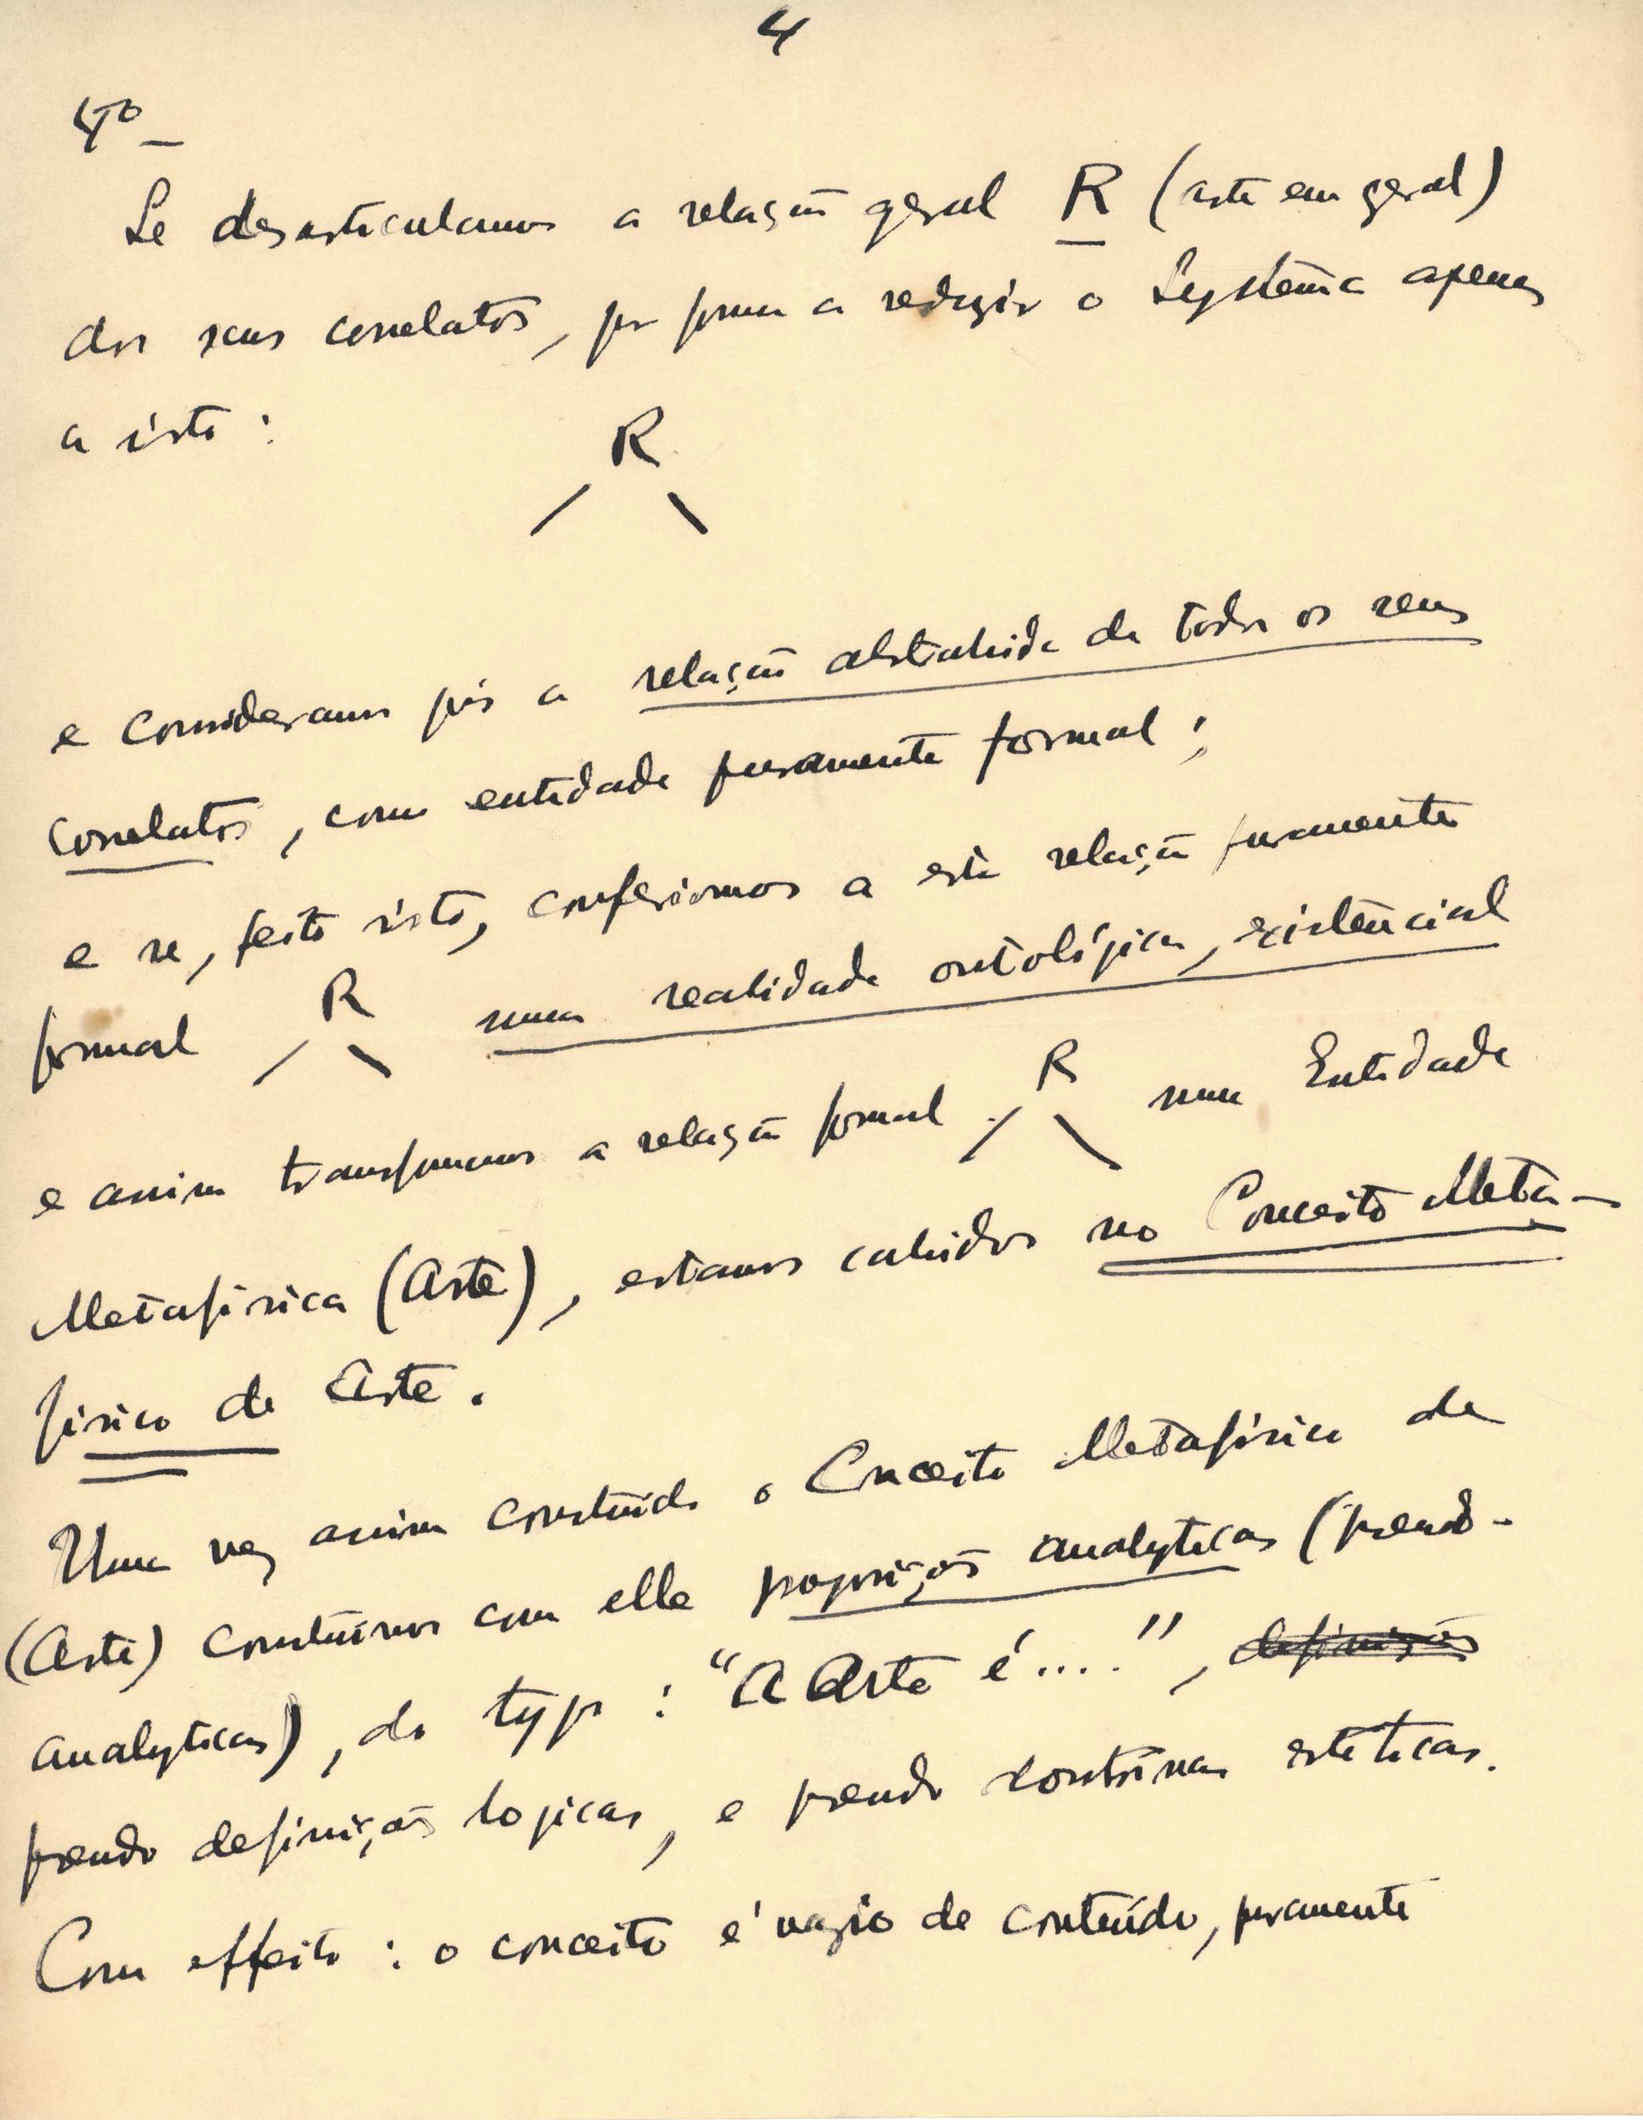 4
4º —
Se desarticulamos a relação geral R (arte em geral)
dos seus correlatos, por forma a reduzir o Systema apenas
a isto :
R
e consideramos pois a relação abstrahida de todos os seus
correlatos, como entidade puramente formal ;
e se, feito isto, conferiomos a esta relação puramente
formal R numa realidade ontológica, existencial
e assim transformamos a relação formal R numa Entidade
Metafisica (Arte), estamos cahidos no Conceito Meta-
fisico de Arte.
Uma vez assim construido o Conceito Metafísico de
(Arte) construimos com elle proposições analyticas (pseudo-
analyticas), do typo : "A Arte é....", definições
pseudo definições logicas, e pseudo doutrinas estéticas.
Com effeito : o conceito é vazio de conteúdo, puramente